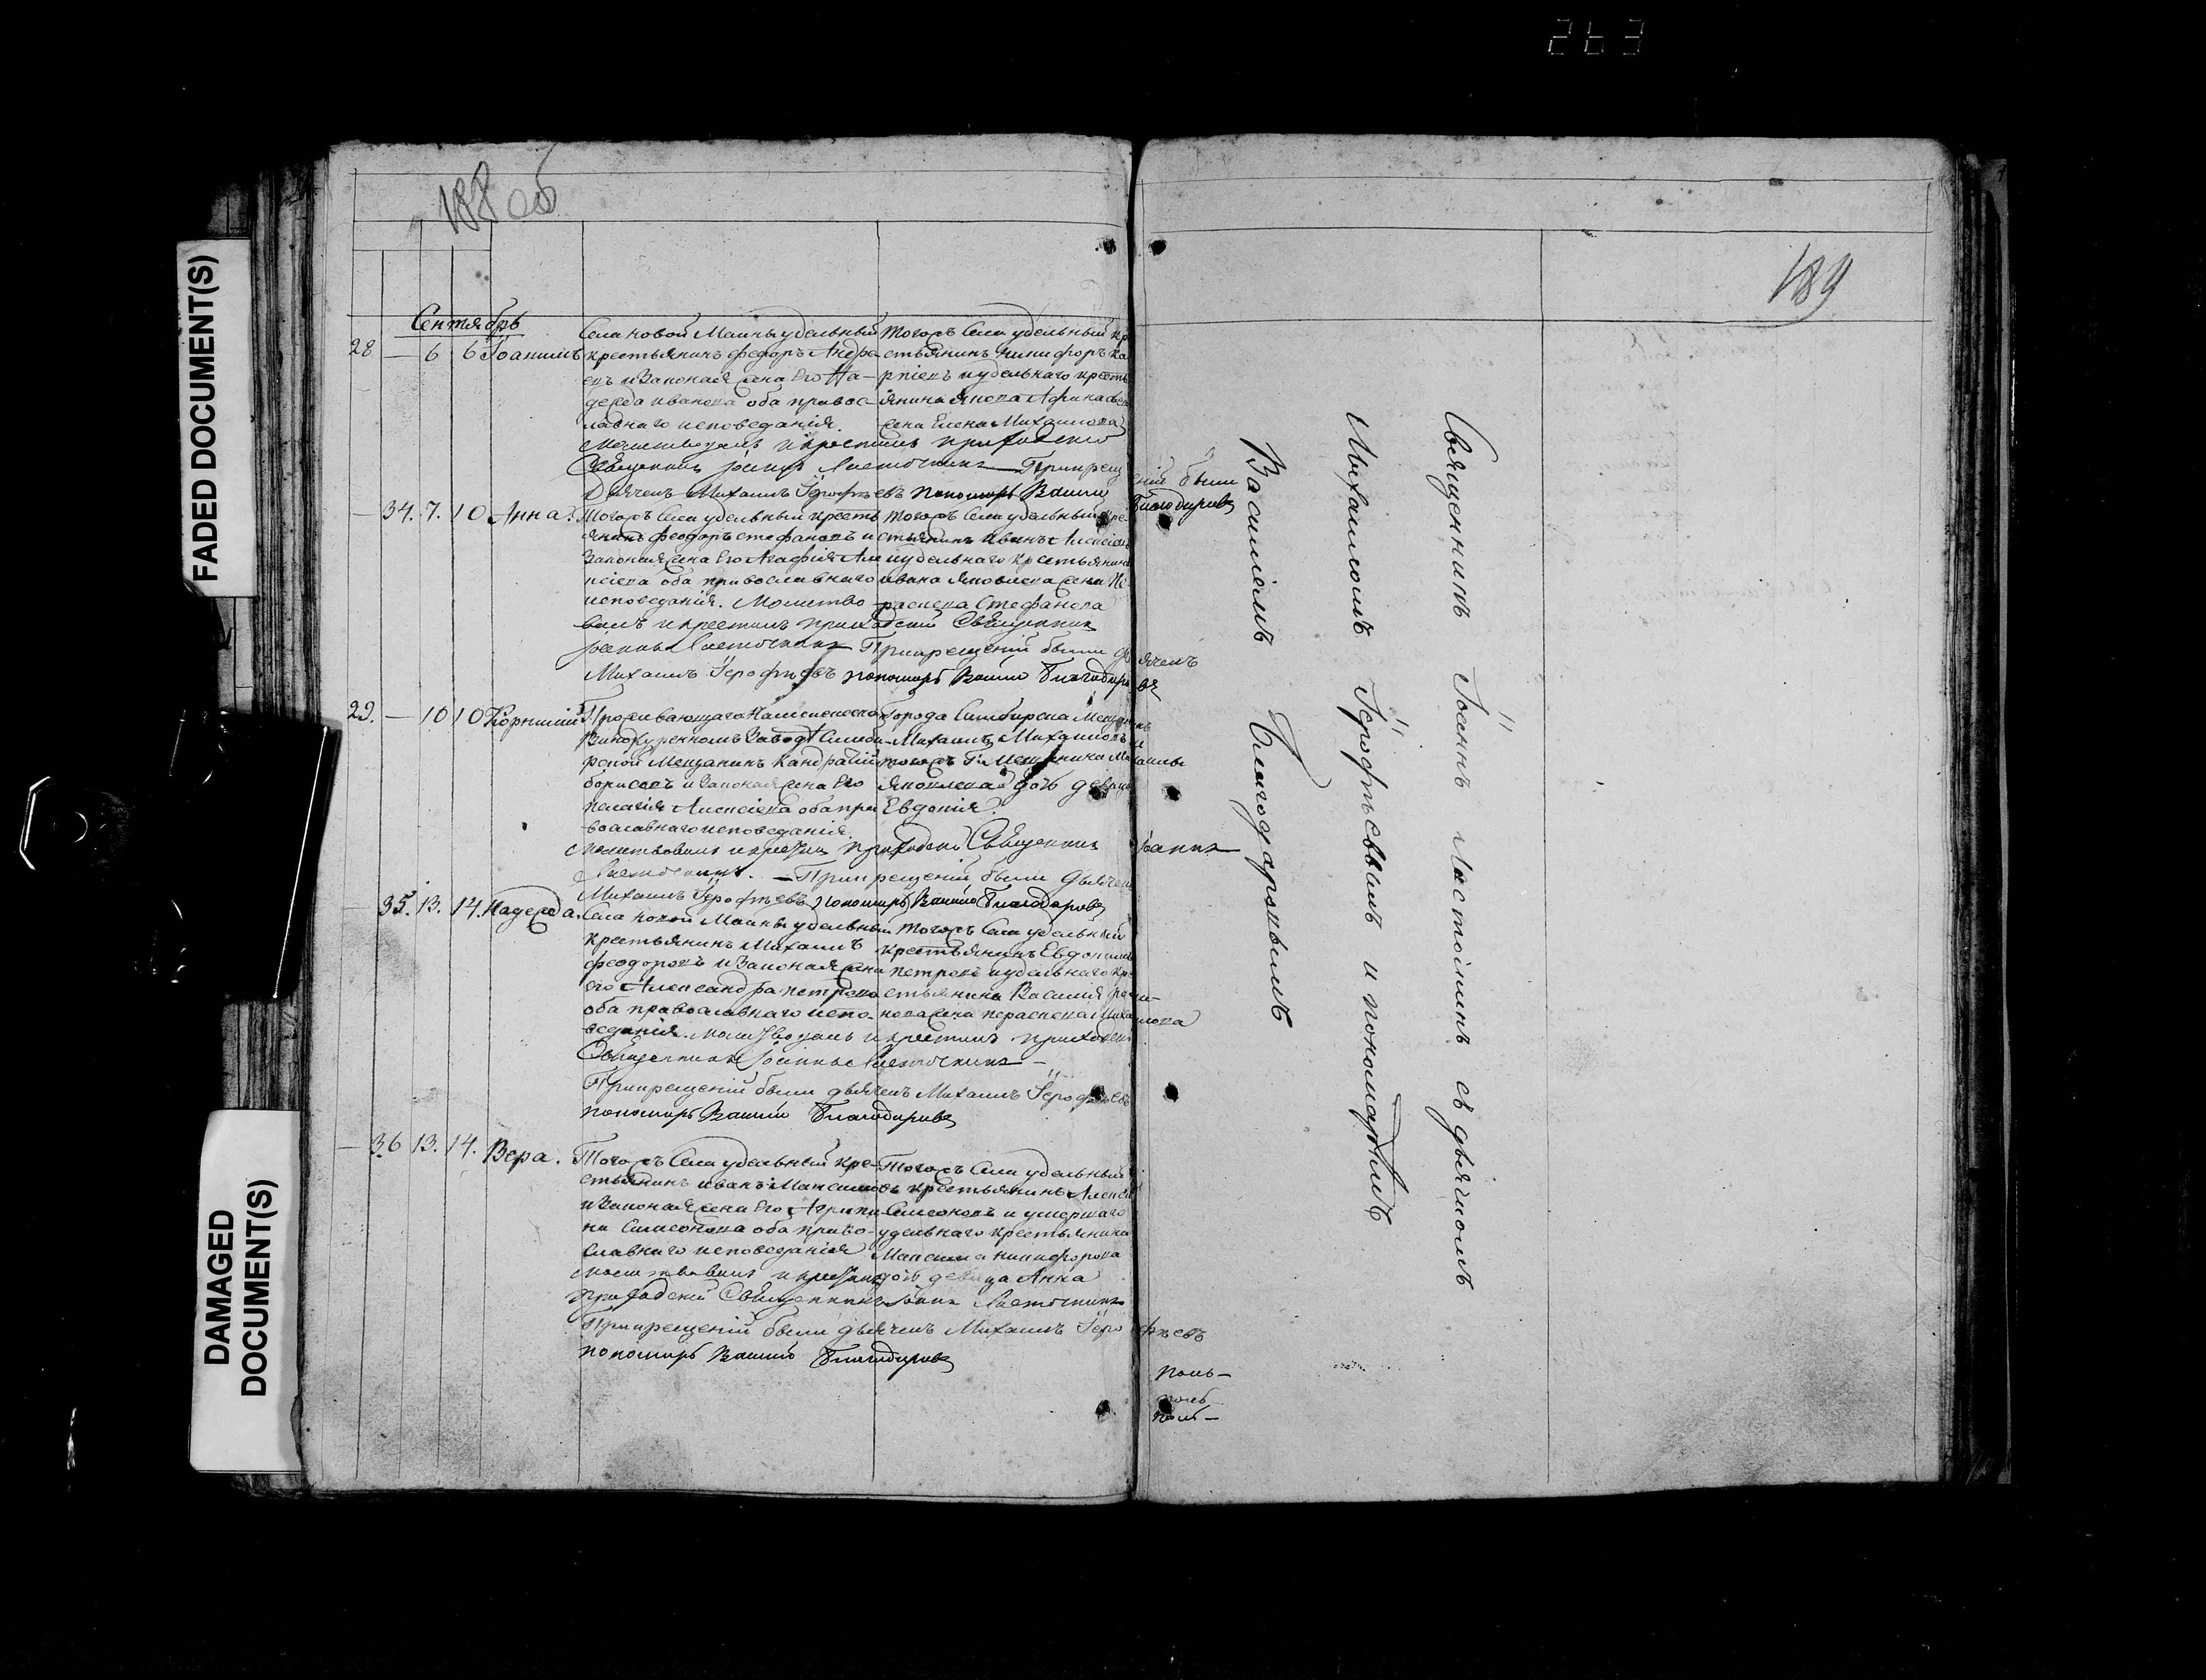 263
FADED DOCUMENT(S)
DAMAGED
DOCUMENT(S)
188 об
189
Сентябрь
28 — 6 6 Іоаннъ
Села новой Маины удѣльный
крестьянинъ федоръ Андре
евъ и Законая жена Его На-
дежда иванова оба правос-
лавнаго исповеданія.
Тогожъ Села удѣльный кр
стьянинъ никифоръ Ка
рпіевъ и удѣльнаго кресть
янина Якова Афонасьев
жена Елена Михаилова
Молитвовалъ и крестилъ приходскій
Священникъ Іоаннъ Ласточкинъ — При крещ
еніи были
Дьячекъ Михаилъ Іерофѣевъ пономарь Василій
Благодаровъ
— 34. 7. 10 Анна.
Тогожъ Села удѣльный кресть
янинъ феодоръ стефановъ и
Законая жена Его Агафія Але
ксіева оба православнаго
исповеданія. Молитво
Тогожъ Села удѣльный кре-
стьянинъ иванъ Алексіевъ
и удѣльнаго крестьянина
ивана Яковлева жена Па
раскева Стефанова
валъ и крестилъ приходскій Священникъ
Іоаннъ Ласточкинъ При крещеніи были дь
ячекъ
Михаилъ Іерофѣевъ пономарь Василій Благодаро
въ
29. — 10 10 Корнилій
Проживающаго
Винокуренномъ Заводѣ Симби-
рской Мещанинъ Кандратій
борисовъ и Законая жена Его
пелагія Алексіева оба пра
вославнаго исповеданія.
Города Симбирска Мещанинъ
Михаилъ Михаиловъ и
тогожъ Г. Мещанина Михаилы
Яковлева дочь девица
Евдокія.
Молитвовалъ и крестилъ приходскій Священникъ Іоаннъ
Ласточкинъ. — При крещеніи были дьячекъ
Михаилъ Іерофѣевъ пономарь Василій Благодаровъ
— 35. 13. 14. Надежда.
Села новой Маины удѣльный
крестьянинъ Михаилъ
феодоровъ и Законая жена
его Александра петрова
оба православнаго испо-
веданія.
Тогожъ Села удѣльный
крестьянинъ Евдокимъ
петровъ и удѣльнаго кре
стьянина Василія роди-
онова жена параскева Михаилова
Молитвовалъ и крестилъ приходскій
Священникъ Іоаннъ Ласточкинъ —
При крещеніи были дьячекъ Михаилъ Іерофѣевъ
пономарь Василій Благодаровъ
— 36 13. 14. Вера.
Тогожъ Села удѣльный кре-
стьянинъ иванъ Максимовъ
и Законая жена Его Агрипи
на Симеонова оба право-
славнаго исповеданія
Тогожъ Села удѣльный
крестьянинъ Алексей
Симеоновъ и умершаго
удѣльнаго крестьянина
Максима никифорова
дочь девица Анна
Молитвовалъ и крестилъ
приходскій Священникъ Іоаннъ Ласточкинъ
При крещеніи были дьячекъ Михаилъ Іеро
фѣевъ
пономарь Василій Благодаровъ
Священникъ Іоаннъ Ластошинъ съ дьячкомъ
Михаиломъ Іерофѣевымъ и пономарѣмъ
Василіемъ Благодаровымъ